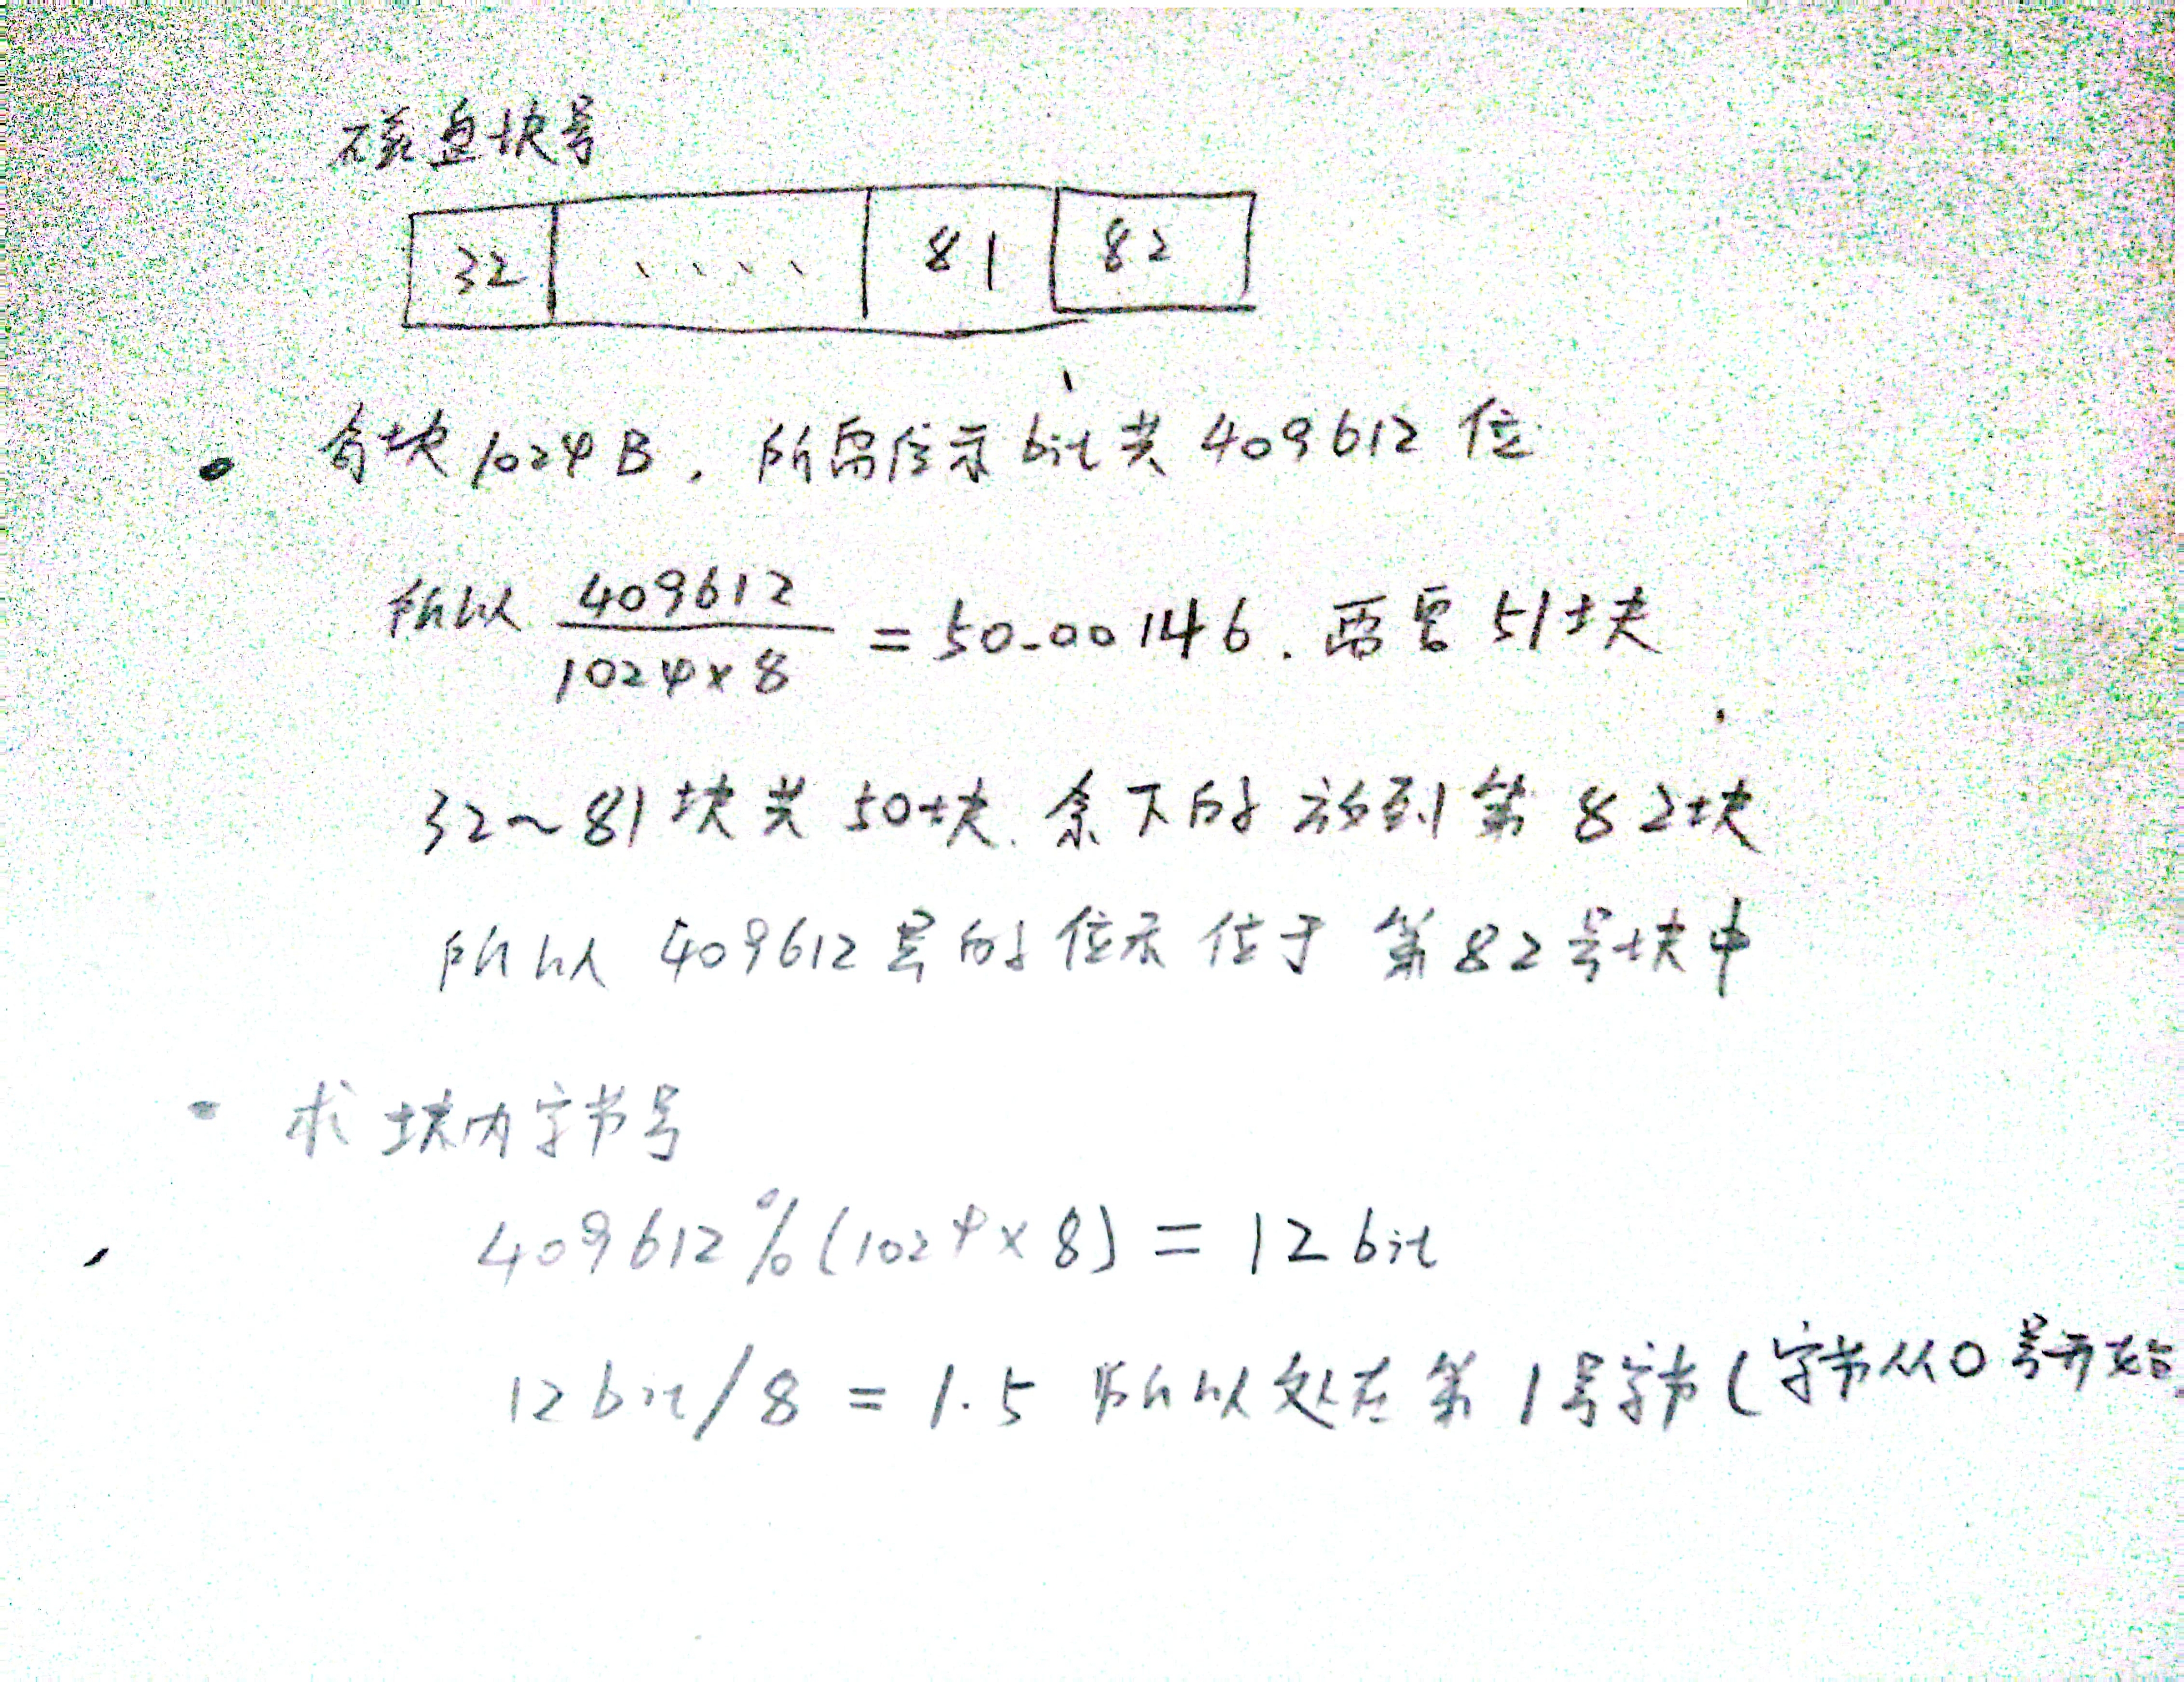 磁盘块号
32 ..... 81 82
每块1024B, 所需位示bit共409612位
所以 409612 / 1024×8 = 50.00146. 需要51块
32~81块共50块. 余下的放到第82块
所以409612号的位示位于第82号块中
求块内字节号
409612%(1024×8) = 12bit
12bit/8 = 1.5 所以处在第1号字节(字节从0号开始